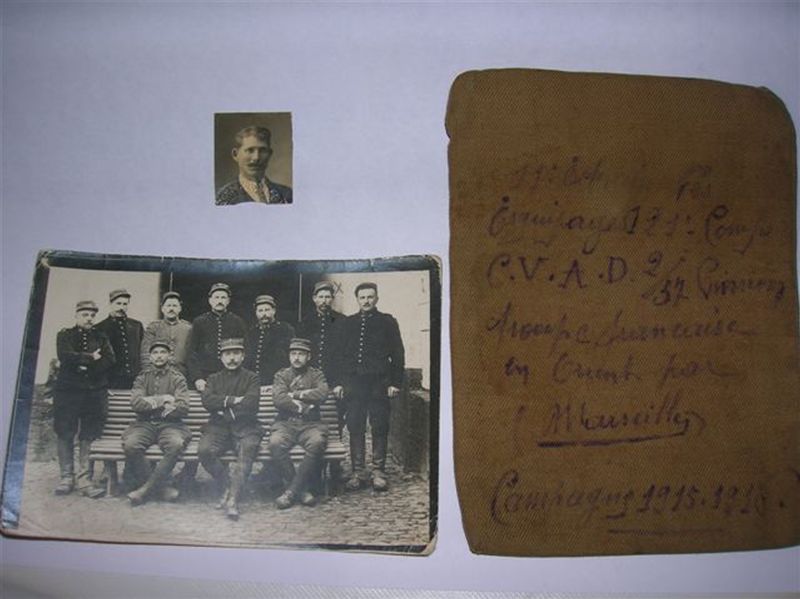 Equipages 121e Comp
C.V.A.D. 2/57 Environs
troupe francaise
en Orient par
Marseille
Campagne 1915-1918